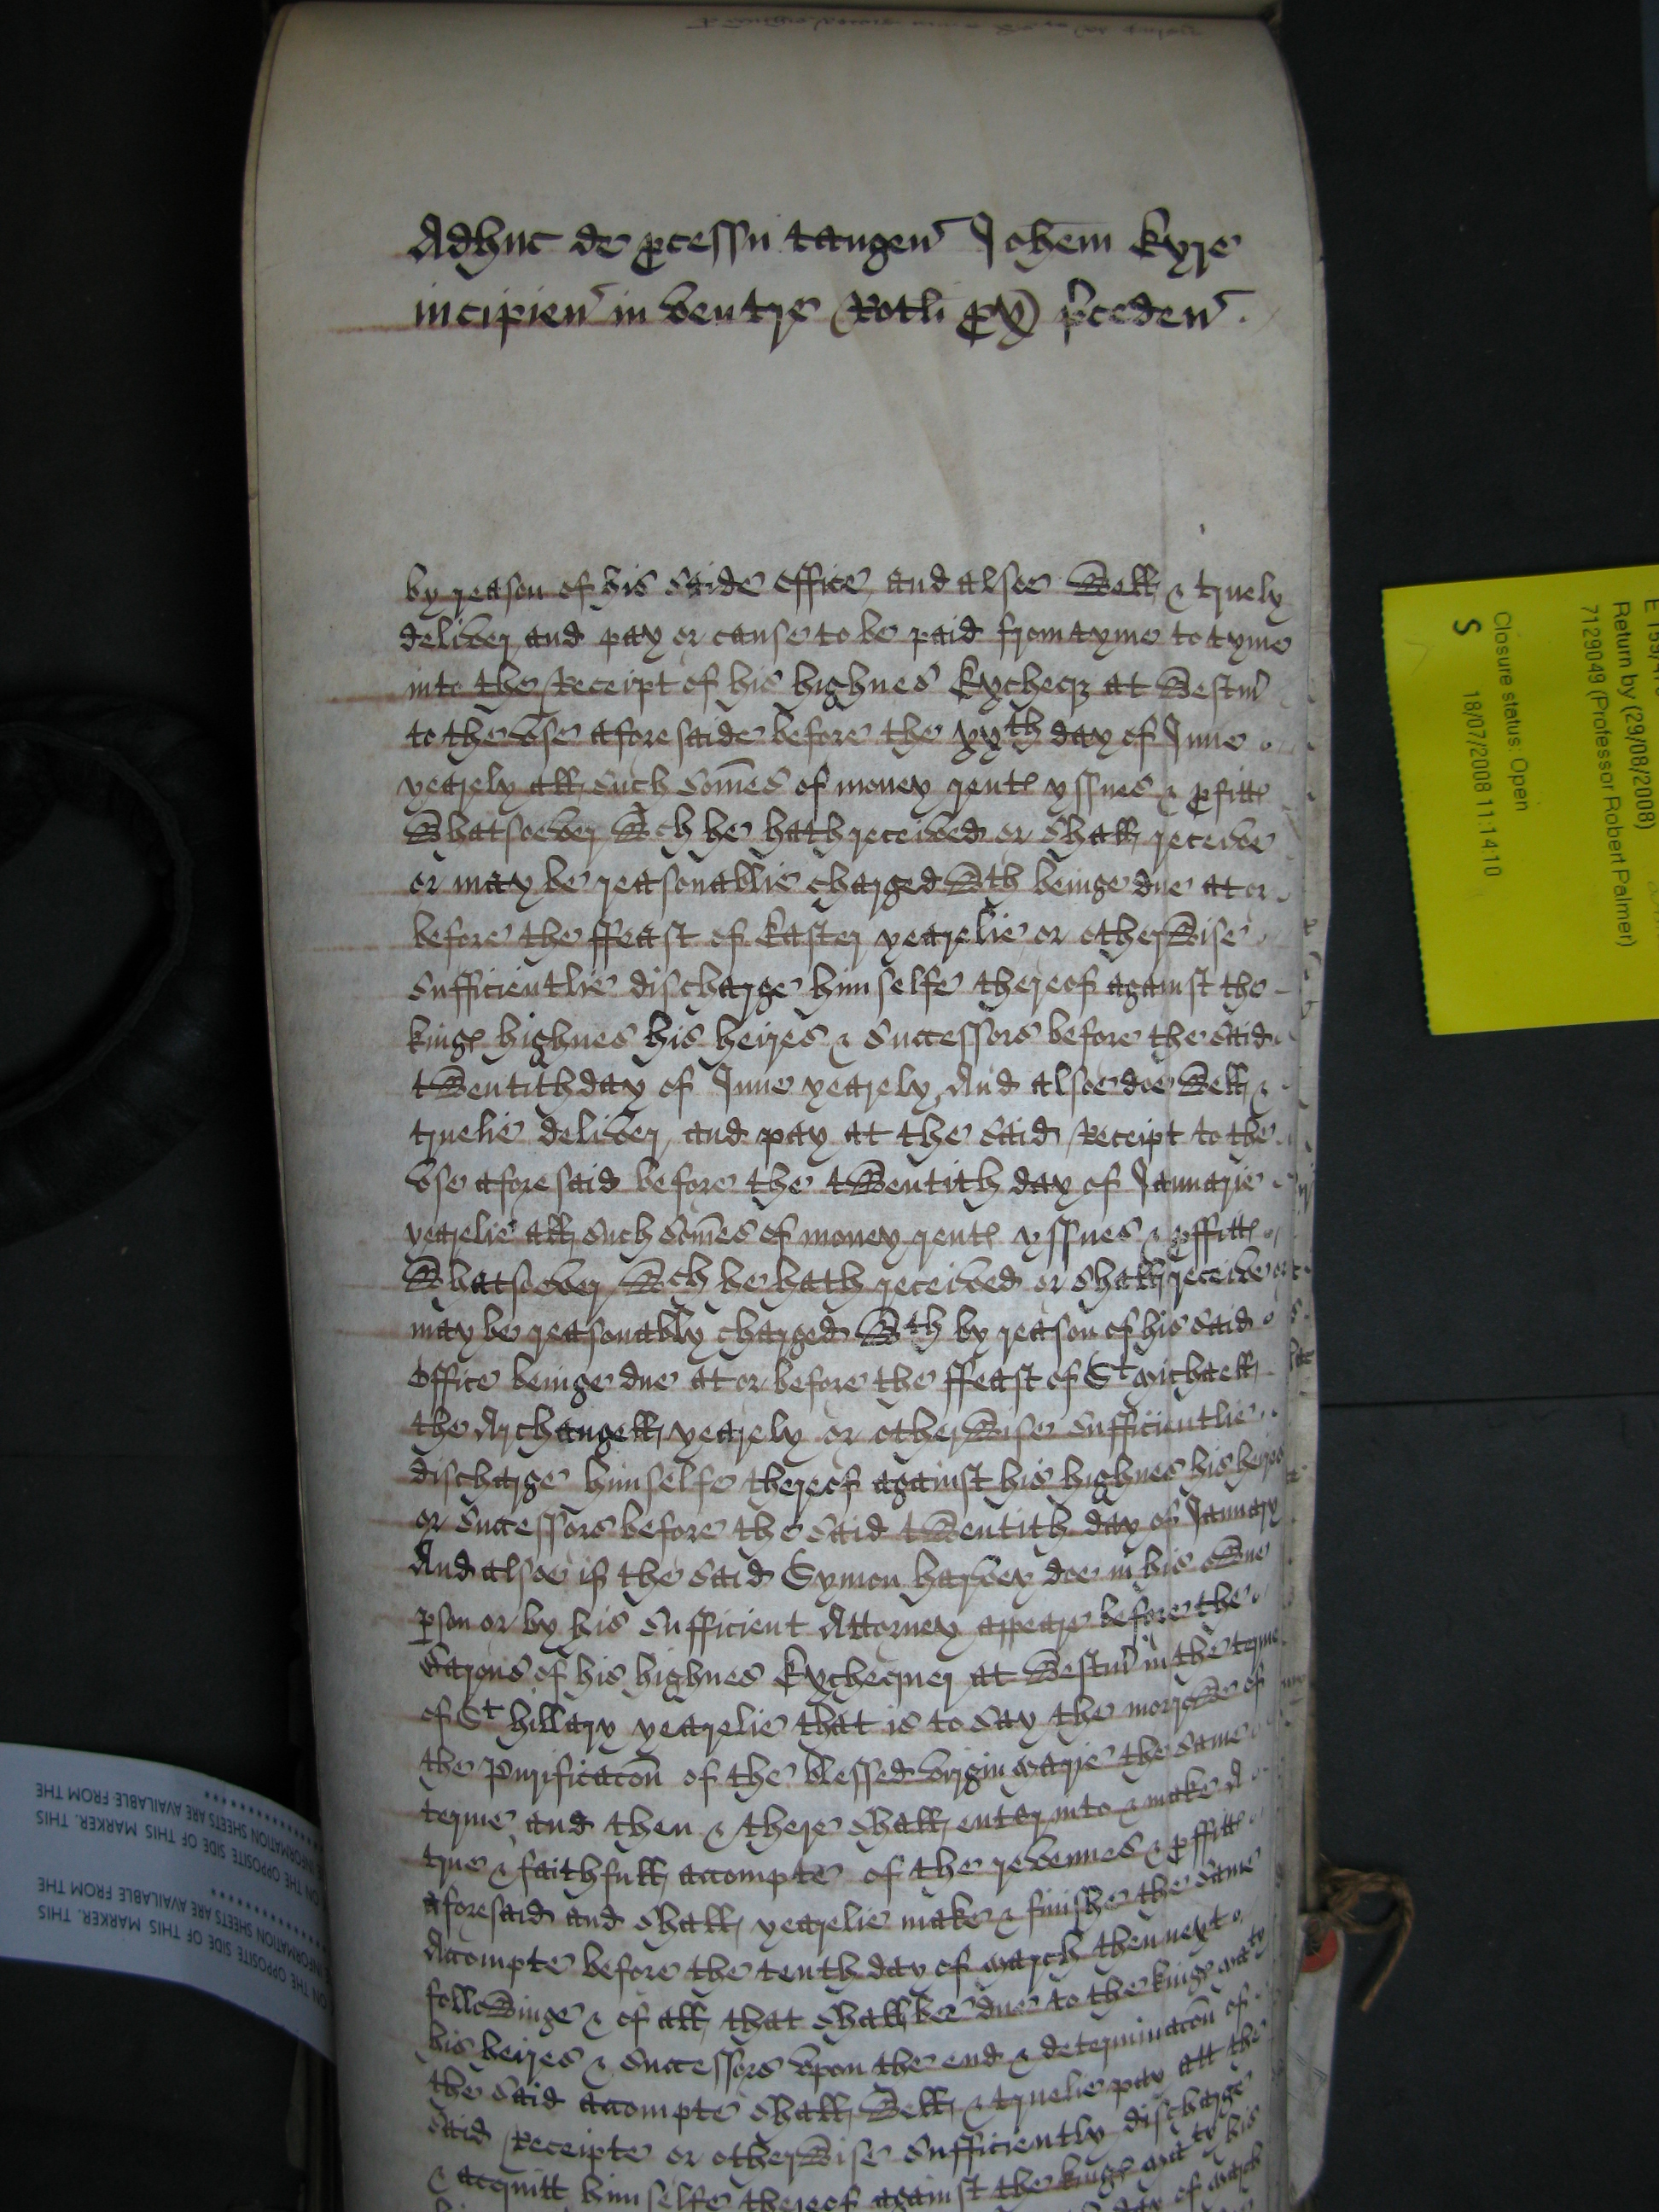 Adhuc de pcessu tangen Johem Kyrle
incipien in ventre Rotli pxj pceden
by reason of his saide office and alsoe well & truely
deliver and pay or cause to be paid from tyme to tyme
into the Receipt of his highnes Exchecqr at Westm
to the use aforesaide before the xxth day of June
yearely all such somes of money rents yssues & pfitts
Whatsoever Wch he hath received or shall receive
or may be reasonablie charged Wth beinge due at or
before the ffeast of Easter yearelie or otherwise
sufficientlie discharge himselfe thereof against the
kings highnes his heires & successors before the said
twentith day of June yearely, And alsoe doe well &
truelie deliver and pay at the said Receipt to the
use aforesaid before the twentith day of Januarie
yearelie all such somes of money rents yssues & pffitts
Whatsoever Wch he hath received or shall receive or
may be reasonably charged Wth by reason of his said
office beinge due at or before the ffeast of St Michaell
the Archangell yearely or otherwise sufficientlie
discharge himselfe thereof against his highnes his heires
or successors before the said twentith day of January
And alsoe if the said Symon harvey doe in his owne
pson or by his sufficient Attorney appeare before the
Barons of his highnes Exchequer at Westm in the terme
of St hillary yearelie that is to say the morrowe of
the Purificacon of the blessed virgin Marie the same
terme and then & there shall enter into & make A
true & faithfull accompte of the revennues & pffitts
aforesaid and shall yearelie make & finishe the same
Accompte before the tenth day of March then next
followinge & of all that shall bee due to the kings Maty
his heires & successors upon the end & determinacon of
the said accompte shall well & truelie pay att the
said Receipte or otherwise sufficiently discharge
& acquitt himselfe thereof against the kings Maty his
day of March
E 159/4
Return by (29/08/2008)
7129049 (Professor Robert Palmer)
Closure status: Open
S
18/07/2008 11:14:10
ON THE OPPOSITE SIDE OF THIS MARKER. THIS
INFORMATION SHEETS ARE AVAILABLE FROM THE
ON THE OPPOSITE SIDE OF THIS MARKER. THIS
INFORMATION SHEETS ARE AVAILABLE FROM THE